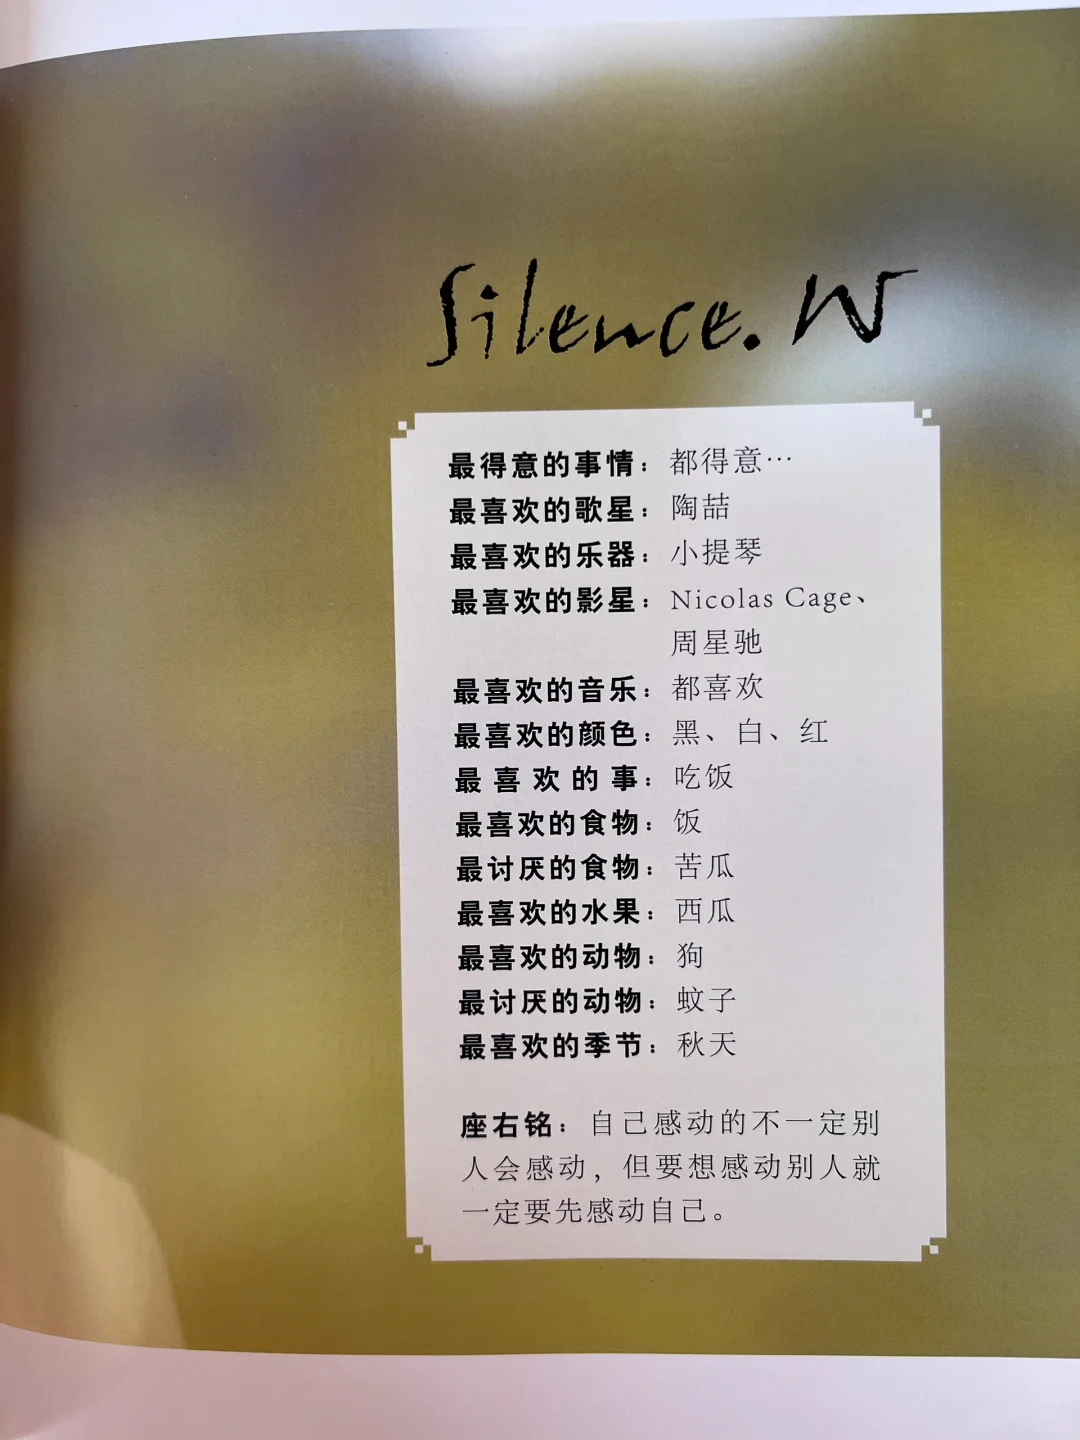 Silence.W
最得意的事情：都得意…
最喜欢的歌星：陶喆
最喜欢的乐器：小提琴
最喜欢的影星：Nicolas Cage、
周星驰
最喜欢的音乐：都喜欢
最喜欢的颜色：黑、白、红
最喜欢的事：吃饭
最喜欢的食物：饭
最讨厌的食物：苦瓜
最喜欢的水果：西瓜
最喜欢的动物：狗
最讨厌的动物：蚊子
最喜欢的季节：秋天
座右铭：自己感动的不一定别
人会感动，但要想感动别人就
一定要先感动自己。